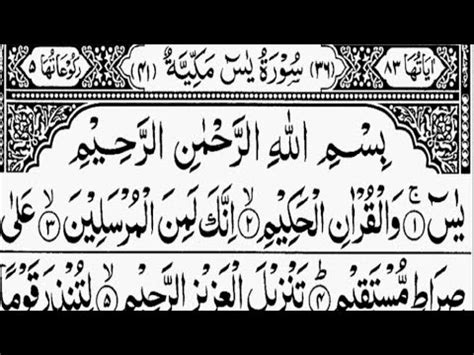 اٰيَاتُهَا ٨٣ (٣٦) سُوْرَةُ يٰسٓ مَكِّيَّةٌ (٤١) رُكُوْعَاتُهَا ٥
بِسْمِ اللّٰهِ الرَّحْمٰنِ الرَّحِيْمِ
يٰسٓ ۚ‏﴿۱﴾ وَالْقُرْاٰنِ الْحَكِيْمِ ۙ‏﴿۲﴾ اِنَّكَ لَمِنَ الْمُرْسَلِيْنَ ۙ‏﴿۳﴾ عَلٰى
صِرَاطٍ مُّسْتَقِيْمٍ ؕ‏﴿۴﴾ تَنْزِيْلَ الْعَزِيْزِ الرَّحِيْمِ ۙ‏﴿۵﴾ لِتُنْذِرَ قَوْمًا